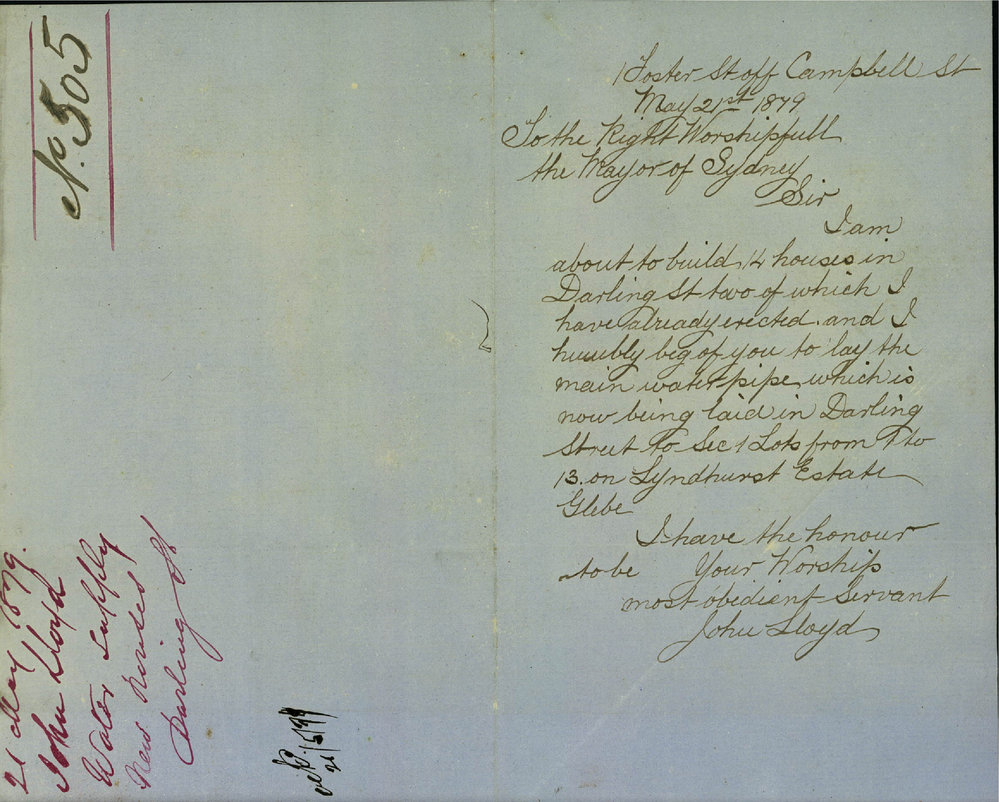 No. 505
1 Foster St off Campbell St
May 21st 1879
To the Right Worshipfull
the Mayor of Sydney
Sir
I am
about to build 14 houses in
Darling St two of which I
have already erected and I
humbly beg of you to lay the
main water pipe which is
now being laid in Darling
Street to Sec 1 Lots from 1 to
13 on Lyndhurst Estate
Glebe
I have the honour
to be Your Worship
most obedient Servant
John Lloyd
21 May 1879.
John Lloyd
Water supply
New Houses
Darling St
21/5/79